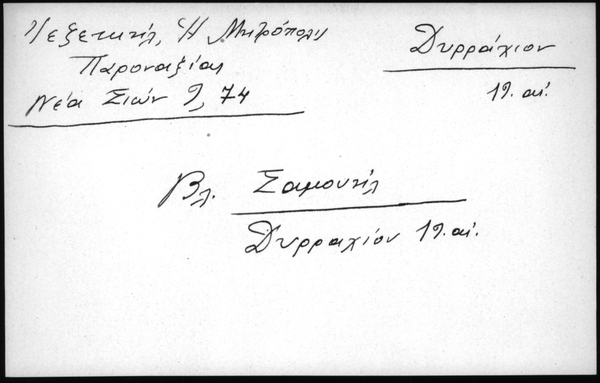 Ἰεζεκιήλ, Ἡ Μητρόπολις
Παροναξίας
Νέα Σιών 9, 74
Δυρράχιον
19. αἰ.
Βλ. Σαμουήλ
Δυρραχίου 19. αἰ.